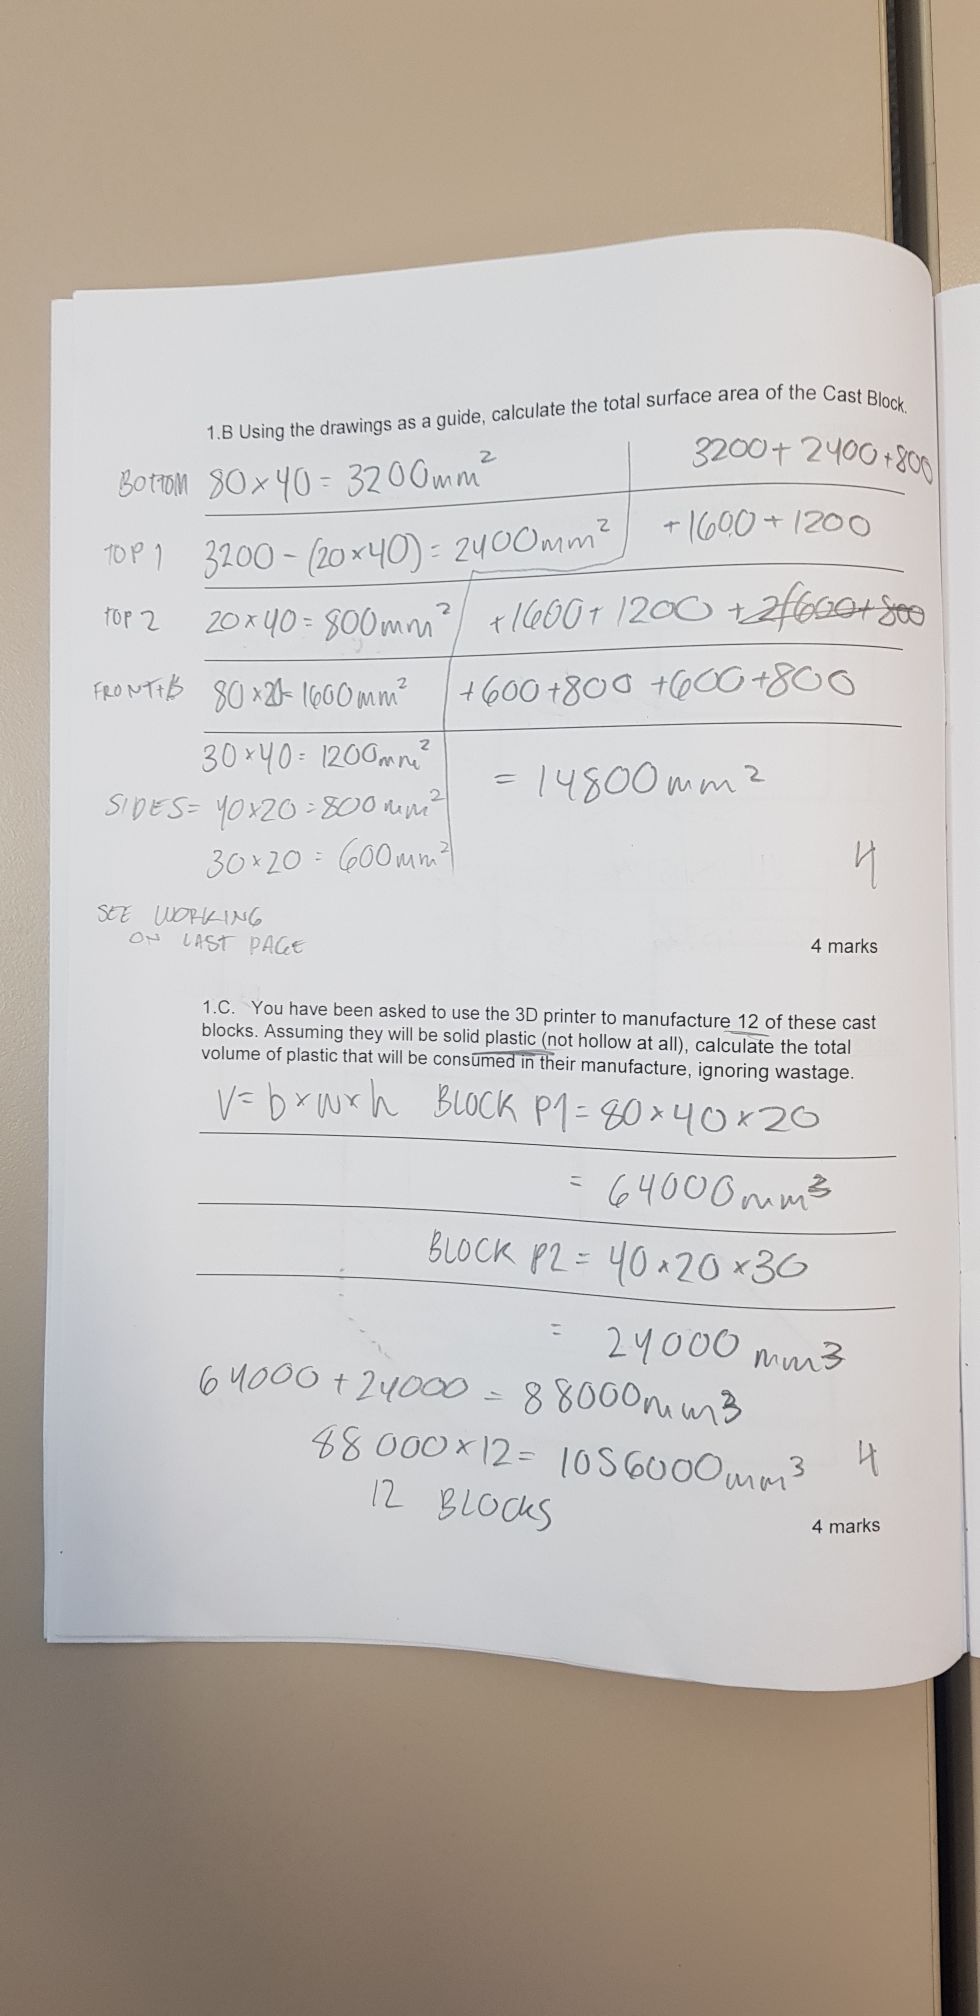 1.B Using the drawings as a guide, calculate the total surface area of the Cast Block.
BOTTOM 80 × 40 = 3200mm²
TOP 1 3200 - (20 × 40) = 2400mm²
TOP 2 20 × 40 = 800mm²
FRONT+B 80 × 20 = 1600mm²
30 × 40 = 1200mm²
SIDES = 40 × 20 = 800mm²
30 × 20 = 600mm²
3200 + 2400 + 800
+ 1600 + 1200
+ 1600 + 1200 + 2(600 + 800
+ 600 + 800 + 600 + 800
= 14800mm²
4
SEE WORKING
ON LAST PAGE
4 marks
1.C. You have been asked to use the 3D printer to manufacture 12 of these cast
blocks. Assuming they will be solid plastic (not hollow at all), calculate the total
volume of plastic that will be consumed in their manufacture, ignoring wastage.
V = b × w × h BLOCK P1 = 80 × 40 × 20
= 64000mm³
BLOCK P2 = 40 × 20 × 30
= 24000 mm3
64000 + 24000 = 88000mm3
88 000 × 12 = 1056000mm³ 4
12 BLOCKS
4 marks